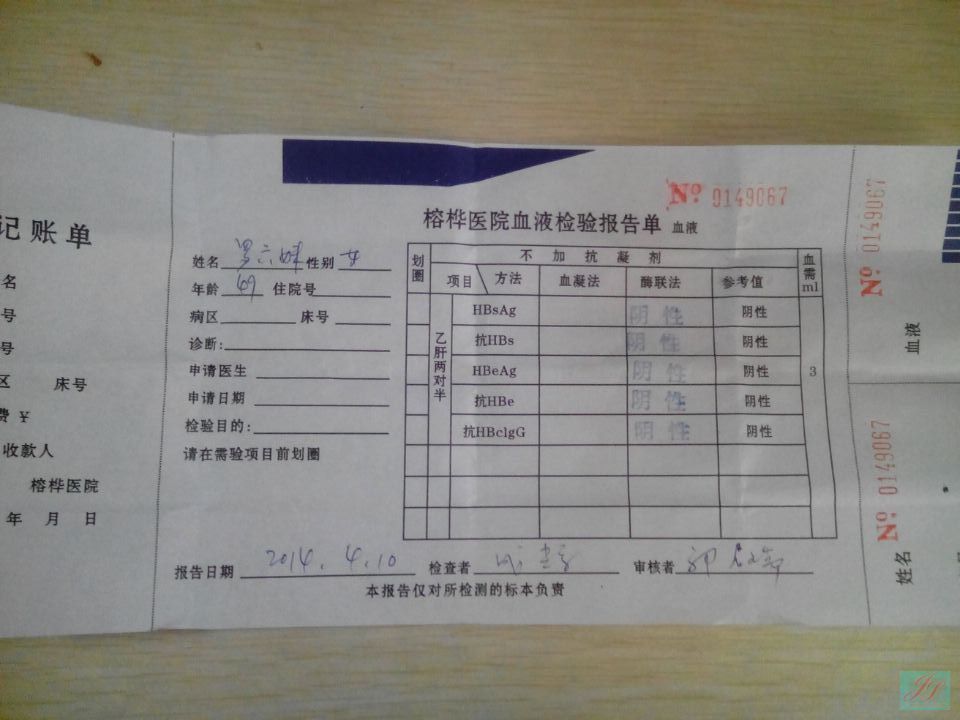 记账单
名
号
号
区 床号
费 ¥
收款人
榕桦医院
年 月 日
№ 0149067
榕桦医院血液检验报告单 血液
姓名 罗六妹 性别 女
年龄 69 住院号
病区 床号
诊断:
申请医生
申请日期
检验目的:
请在需验项目前划圈
划圈 不加抗凝剂 血需ml
项目 方法 血凝法 酶联法 参考值
乙肝两对半
HBsAg 阴性 阴性
抗HBs 阴性 阴性
HBeAg 阴性 阴性 3
抗HBe 阴性 阴性
抗HBclgG 阴性 阴性
报告日期 2014.4.10 检查者 审核者
本报告仅对所检测的标本负责
№ 0149067
血液
№ 0149067
姓名